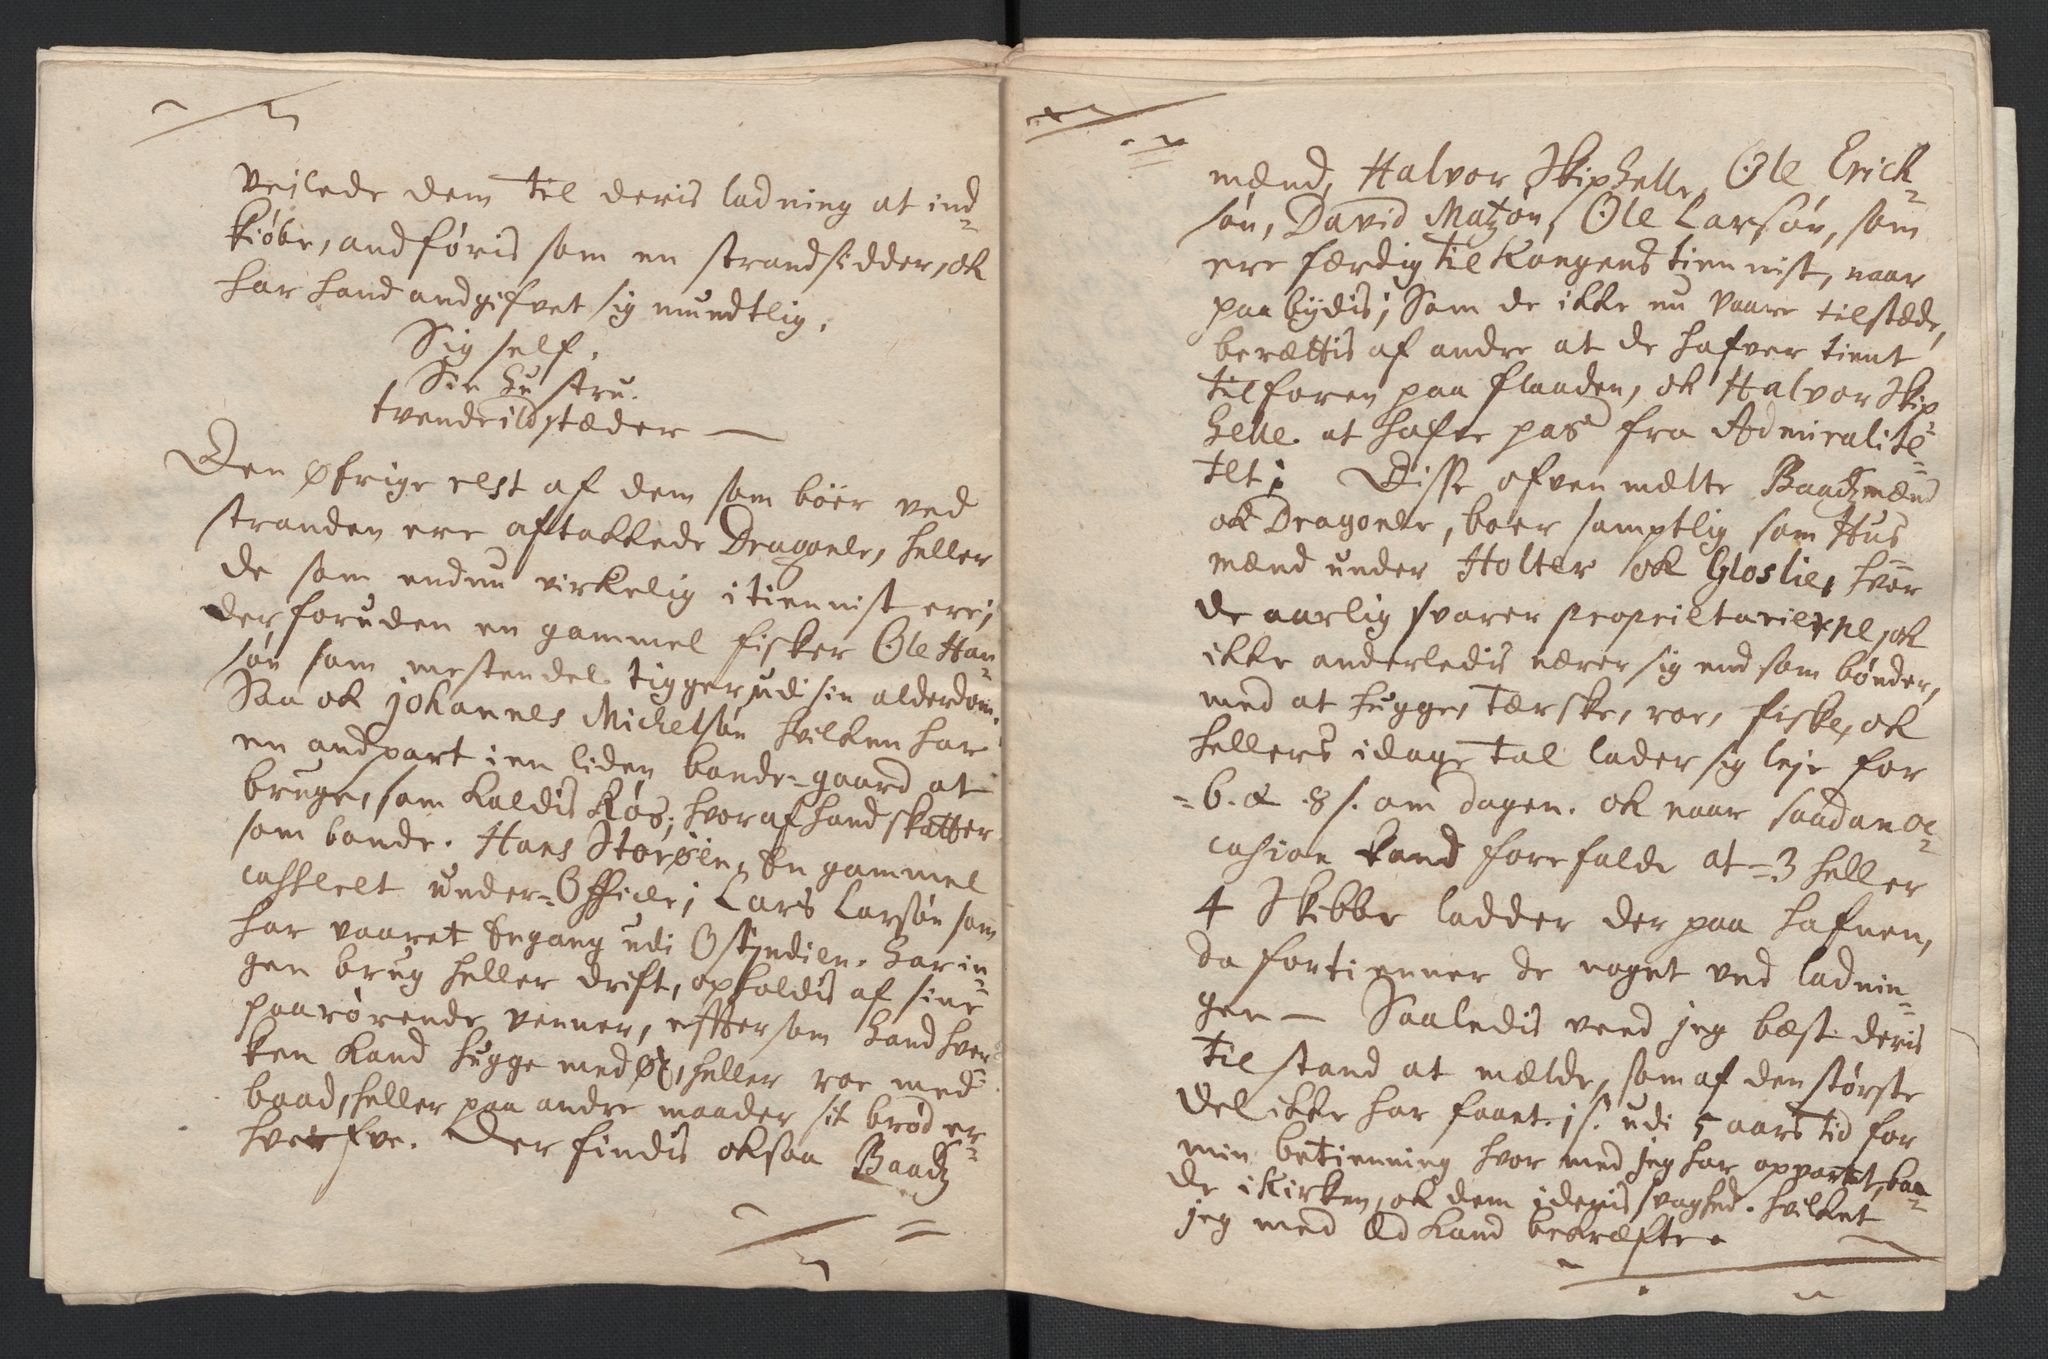 veilede dem til deris ladning at ind=
kiøbe, andføris som en strandsidder, ok
har hand andgifvet sig mundtlig.
Sig self.
Sin hustru.
tvende ildstæder —
Den øfrige rest af dem som böer ved
stranden ere aftakkede Dragoner, heller
de som endnu virkelig i tiennist ere;
der foruden en gammel fisker Ole Han=
søn som mestendel tigger udi sin alderdom.
Saa ok johannes Michelsøn hvilken har
en andpart i en liden bonde-gaard at
bruge, som kaldis Røs; hvor af hand skatter
som bonde. Hans Storøien, En gammel
casseret under=Officer; Lars Larsøn som
har vaaret Engang udi Ostindien. har in=
gen brug heller drift, opholdis af sine
paarørende venner, efftersom hand hver=
ken kand hugge med øx, heller roe med
baad, heller paa andre maader sit brød er=
hverfve. Der findis oksaa Baadz
mænd, Halvor Skiphelle, Ole Erick=
søn, David Matzøn, Ole Larsøn, som
ere færdig til Kongens tiennist, naar
paabydis; Som de ikke nu vaare tilstæde,
berættis af andre at de hafver tient
tilforen paa flaaden, ok Halvor Skip
helle at hafve pas fra Admiralite=
tet; Disse ofvenmælte Baadzmænd
ok Dragoner, boer samptlig som Hus
mænd under Holter ok Gloslie, hvor
de aarlig svarer proprietarierne, ok
ikke anderledis nærer sig end som bønder,
med at hugge, tærske, roe, fiske, ok
hellers i dage tal lader sig leje for
=6. a 8 s. om dagen. ok naar saadan oc=
casion kand forefalde at =3 heller
4 Skibbe ladder der paa hafnen,
da fortienner de noget ved ladnin=
gen — Saaledis veed jeg bæst deris
tilstand at mælde, som af den største
del ikke har faaet 1 s. udi 5 aars tid for
min betienning hvor med jeg har opvartet, baa=
de i Kirken, ok dem i deris svaghed. hvilket
jeg med Æd kand bekræfte.